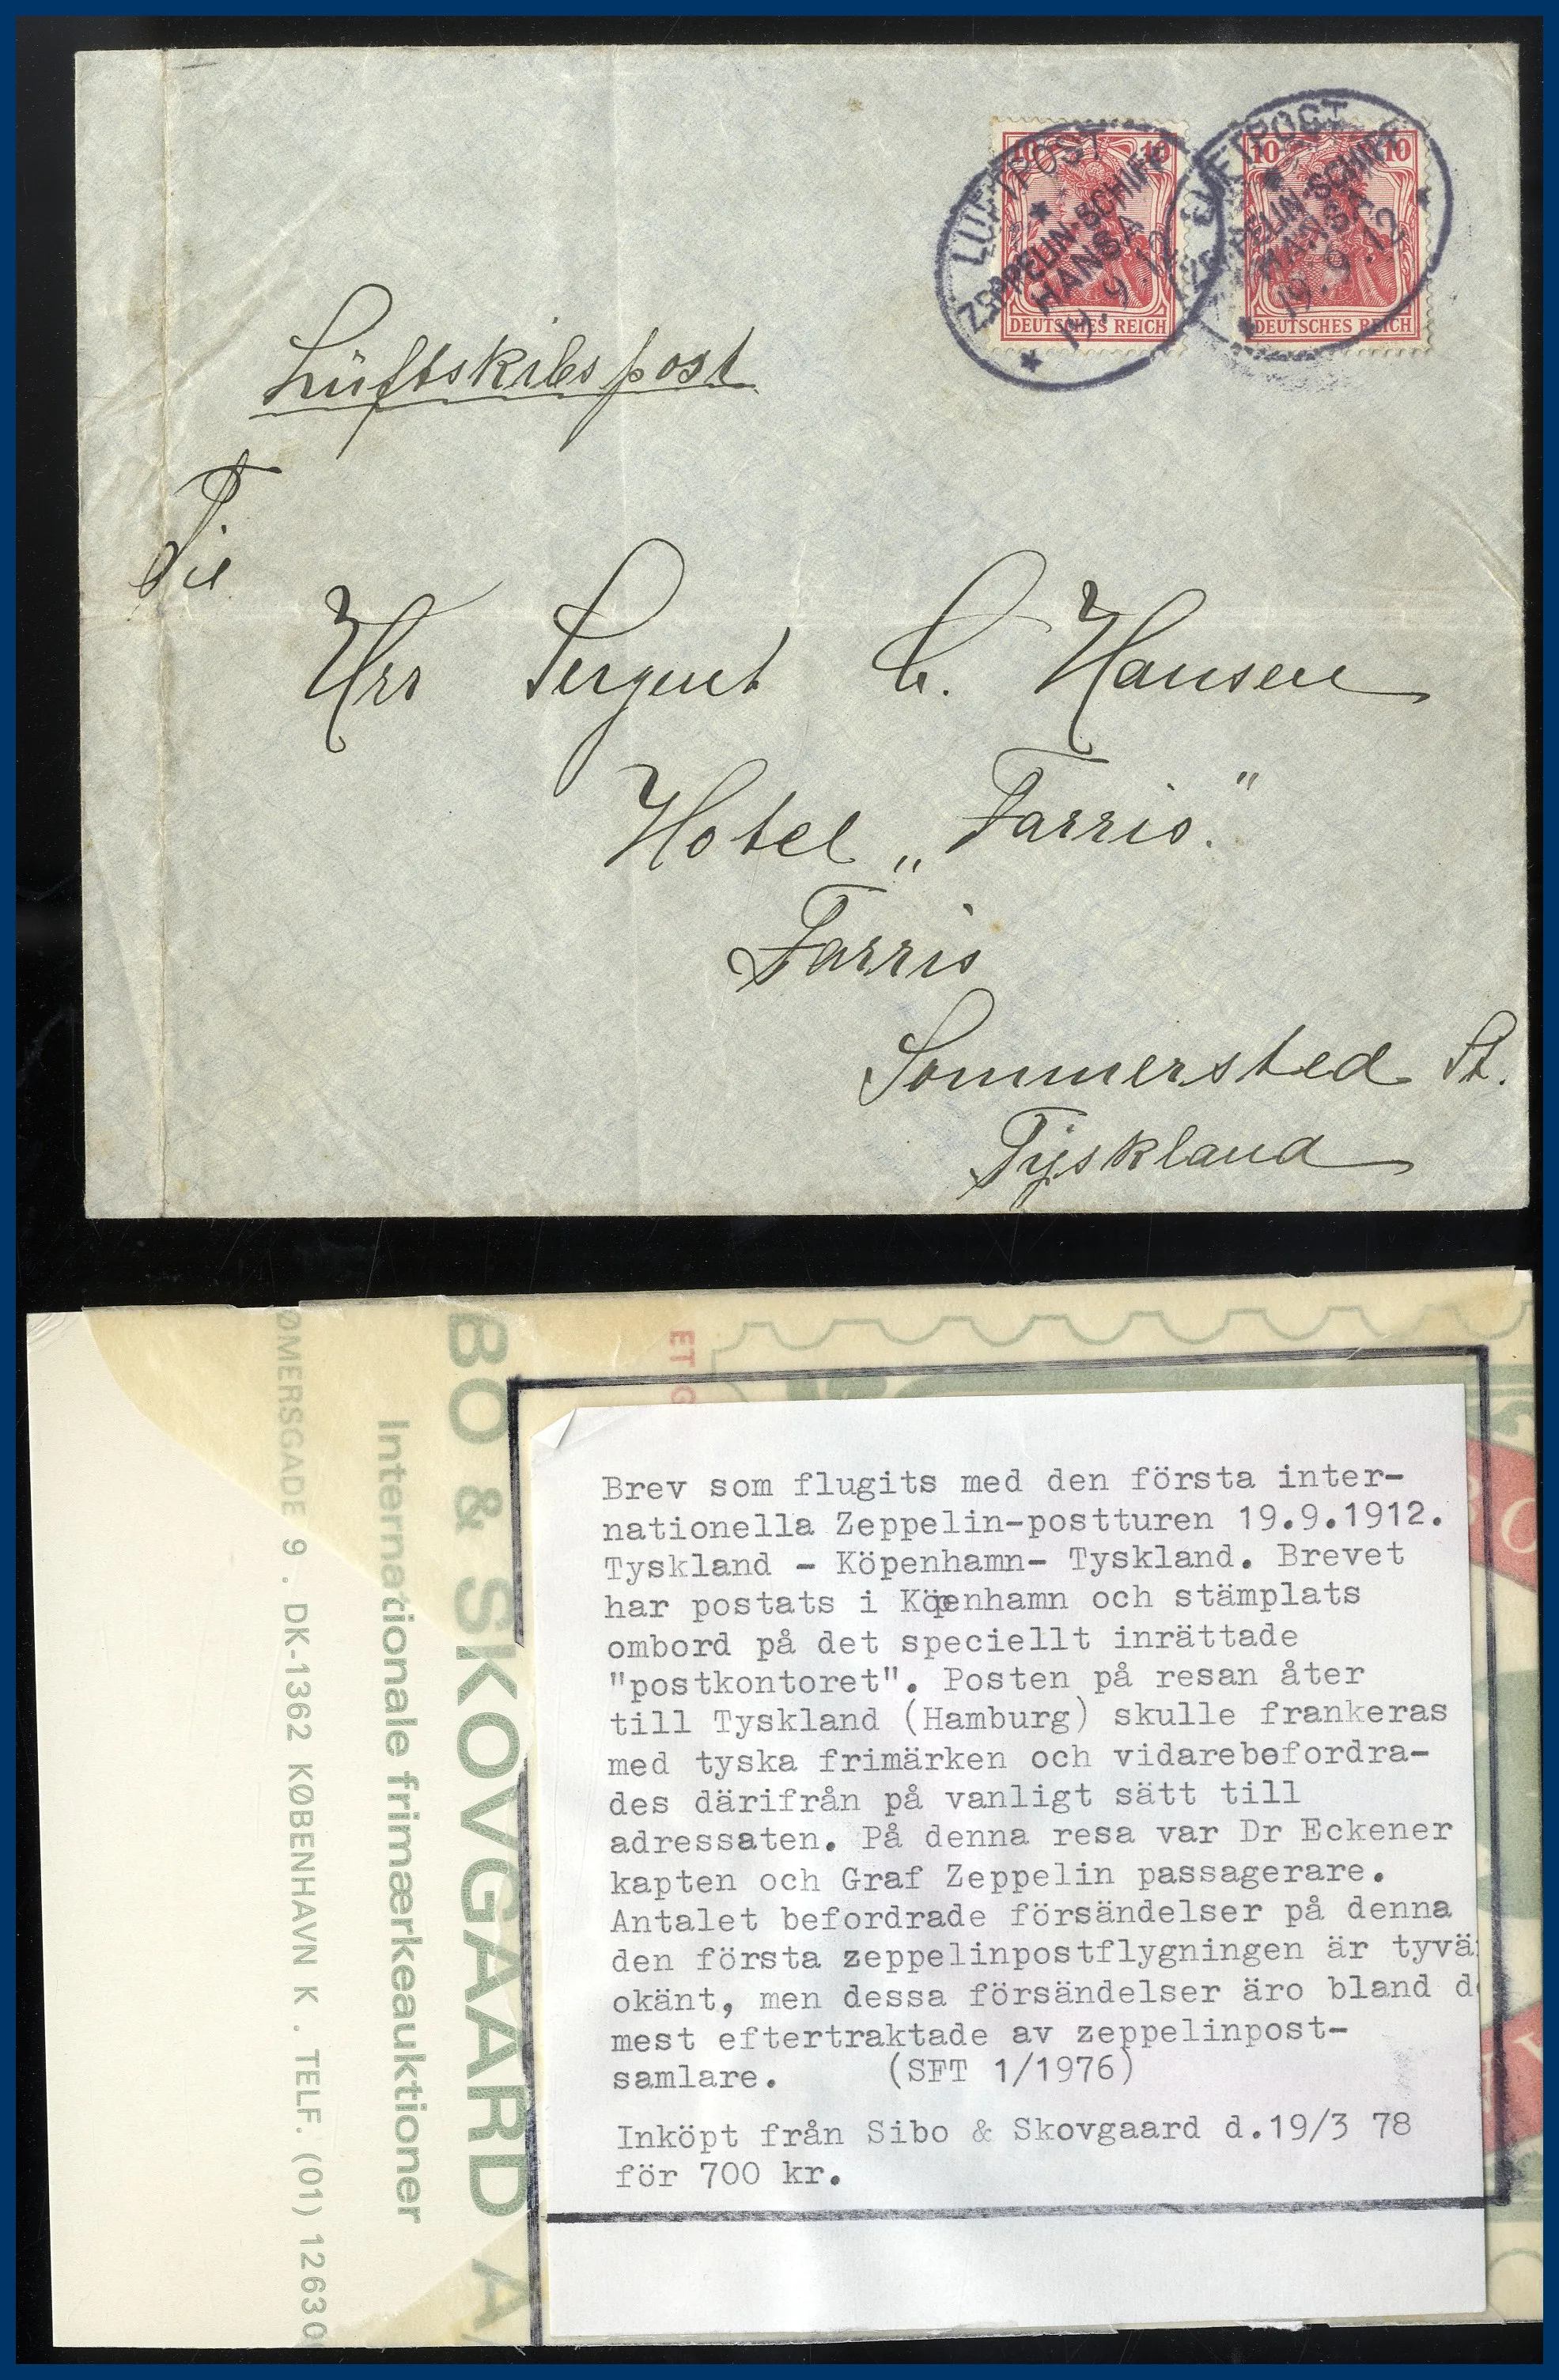 LUFTPOST
ZEPPELIN-SCHIFF
HANSA
19.9.12
LUFTPOST
ZEPPELIN-SCHIFF
HANSA
19.9.12
10 10
DEUTSCHES REICH
10 10
DEUTSCHES REICH
Lüftskibspost
Til
Hrr Sergent C. Hansen
Hotel „Farris."
Farris
Sommersted St.
Tyskland
BO & SKOVGAARD A
Internationale frimærkeauktioner
ØMERSGADE 9 . DK-1362 KØBENHAVN K . TELF. (01) 12630
ET G
Brev som flugits med den första inter-
nationella Zeppelin-postturen 19.9.1912.
Tyskland - Köpenhamn- Tyskland. Brevet
har postats i Köpenhamn och stämplats
ombord på det speciellt inrättade
"postkontoret". Posten på resan åter
till Tyskland (Hamburg) skulle frankeras
med tyska frimärken och vidarebefordra-
des därifrån på vanligt sätt till
adressaten. På denna resa var Dr Eckener
kapten och Graf Zeppelin passagerare.
Antalet befordrade försändelser på denna
den första zeppelinpostflygningen är tyvä
okänt, men dessa försändelser äro bland d
mest eftertraktade av zeppelinpost-
samlare. (SFT 1/1976)
Inköpt från Sibo & Skovgaard d.19/3 78
för 700 kr.